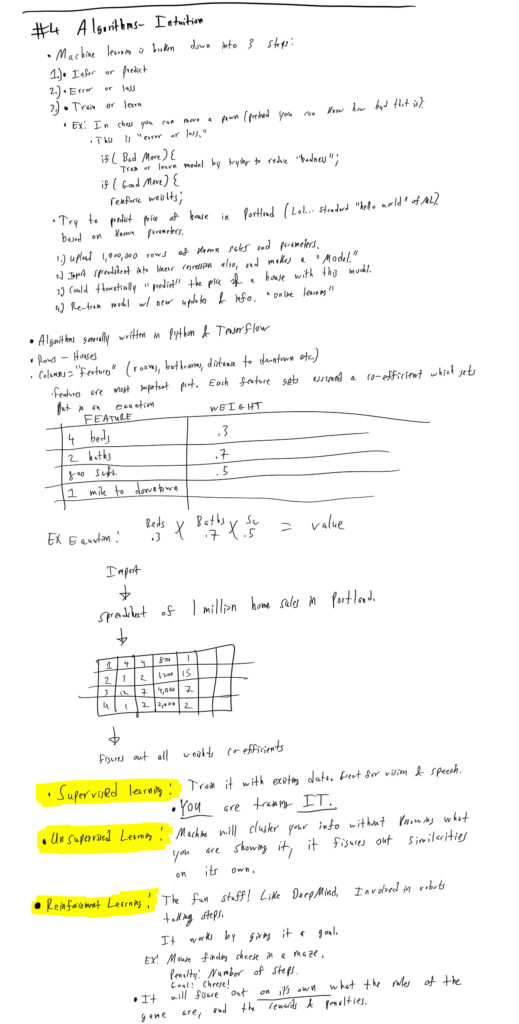 #4 Algorithms - Intuition
• Machine learning is broken down into 3 steps:
1.) • Infer or predict
2.) • Error or loss
3.) • Train or learn
• Ex: In chess you can move a pawn (period you can know how bad that is).
• This is "error or loss."
if ( Bad Move) {
Train or learn model by trying to reduce "badness";
if ( Good Move) {
reinforce weights;
• Try to predict price of house in Portland (Lol... standard "hello world" of ML).
based on known parameters.
1.) Upload 1,000,000 rows of known sales and parameters.
2) Input spreadsheet into linear regression algo, and makes a "Model."
3) Could theoretically "predict" the price of a house with this model.
4) Re-train model w/ new updates & info. "online learning"
• Algorithms generally written in Python & Tensorflow
• Rows - Houses
• Columns = "Features" (rooms, bathrooms, distance to downtown etc.)
• Features are most important part. Each feature gets assigned a co-efficient which gets
put in an equation
FEATURE WEIGHT
4 beds .3
2 baths .7
800 sqft .5
1 mile to downtown
Ex Equation: Beds .3 X Baths .7 X .5 = value
Import
spreadsheet of 1 million home sales in Portland.
1 4 4 800 1
2 1 2 1,200 15
3 12 7 4,000 7
4 1 2 2,000 2
figures out all weights co-efficients
• Supervised learning: Train it with existing data. Great for vision & speech.
• YOU are training IT.
• Unsupervised Learning: Machine will cluster your info without knowing what
you are showing it, it figures out similarities
on its own.
• Reinforcement Learning: The fun stuff! Like DeepMind. Involved in robots
taking steps.
It works by giving it a goal.
Ex: Mouse finding cheese in a maze.
Penalty: Number of steps.
Goal: Cheese!
• It will figure out on it's own what the rules of the
game are, and the rewards & penalties.